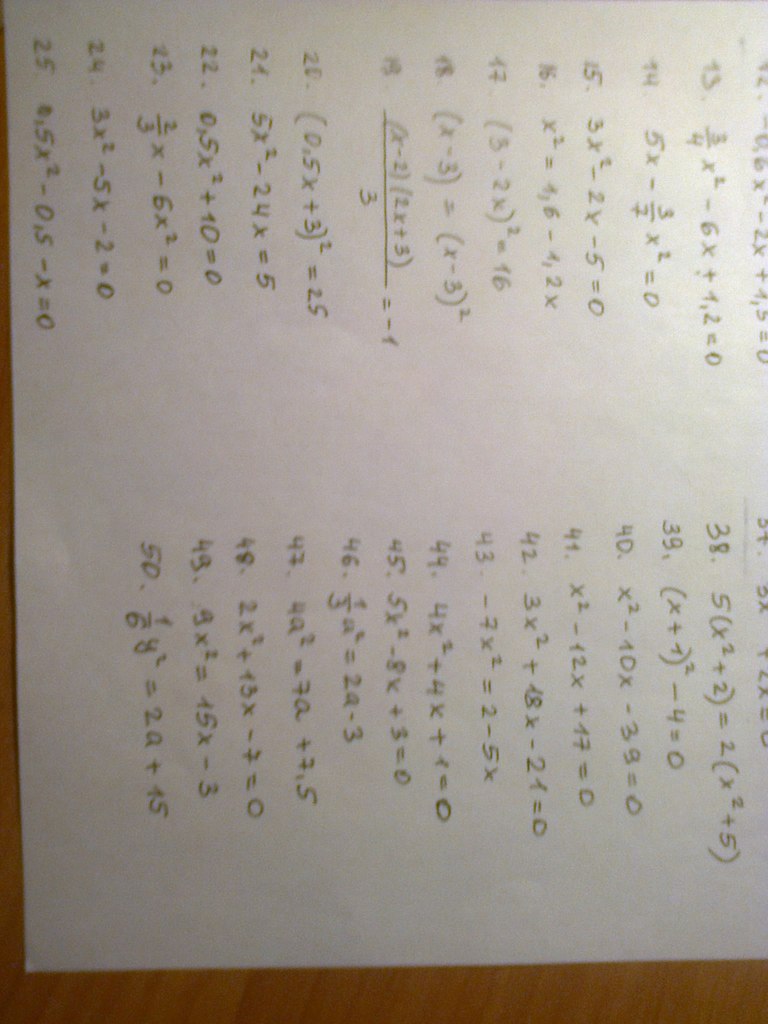 12. -0,6x² - 2x + 1,5 = 0
13. 3/4 x² - 6x + 1,2 = 0
14. 5x - 3/7 x² = 0
15. 3x² - 2x - 5 = 0
16. x² = 1,6 - 1,2x
17. (3 - 2x)² = 16
18. (x - 3) = (x - 3)²
19. (x-2)(2x+3)/3 = -1
20. (0,5x + 3)² = 25
21. 5x² - 24x = 5
22. 0,5x² + 10 = 0
23. 2/3 x - 6x² = 0
24. 3x² - 5x - 2 = 0
25. 0,5x² - 0,5 - x = 0
37. 3x² + 2x = 0
38. 5(x² + 2) = 2(x² + 5)
39. (x + 1)² - 4 = 0
40. x² - 10x - 39 = 0
41. x² - 12x + 17 = 0
42. 3x² + 18x - 21 = 0
43. -7x² = 2 - 5x
44. 4x² + 4x + 1 = 0
45. 5x² - 8x + 3 = 0
46. 1/3 a² = 2a - 3
47. 4a² = 7a + 7,5
48. 2x² + 13x - 7 = 0
49. 9x² = 15x - 3
50. 1/6 y² = 2a + 15